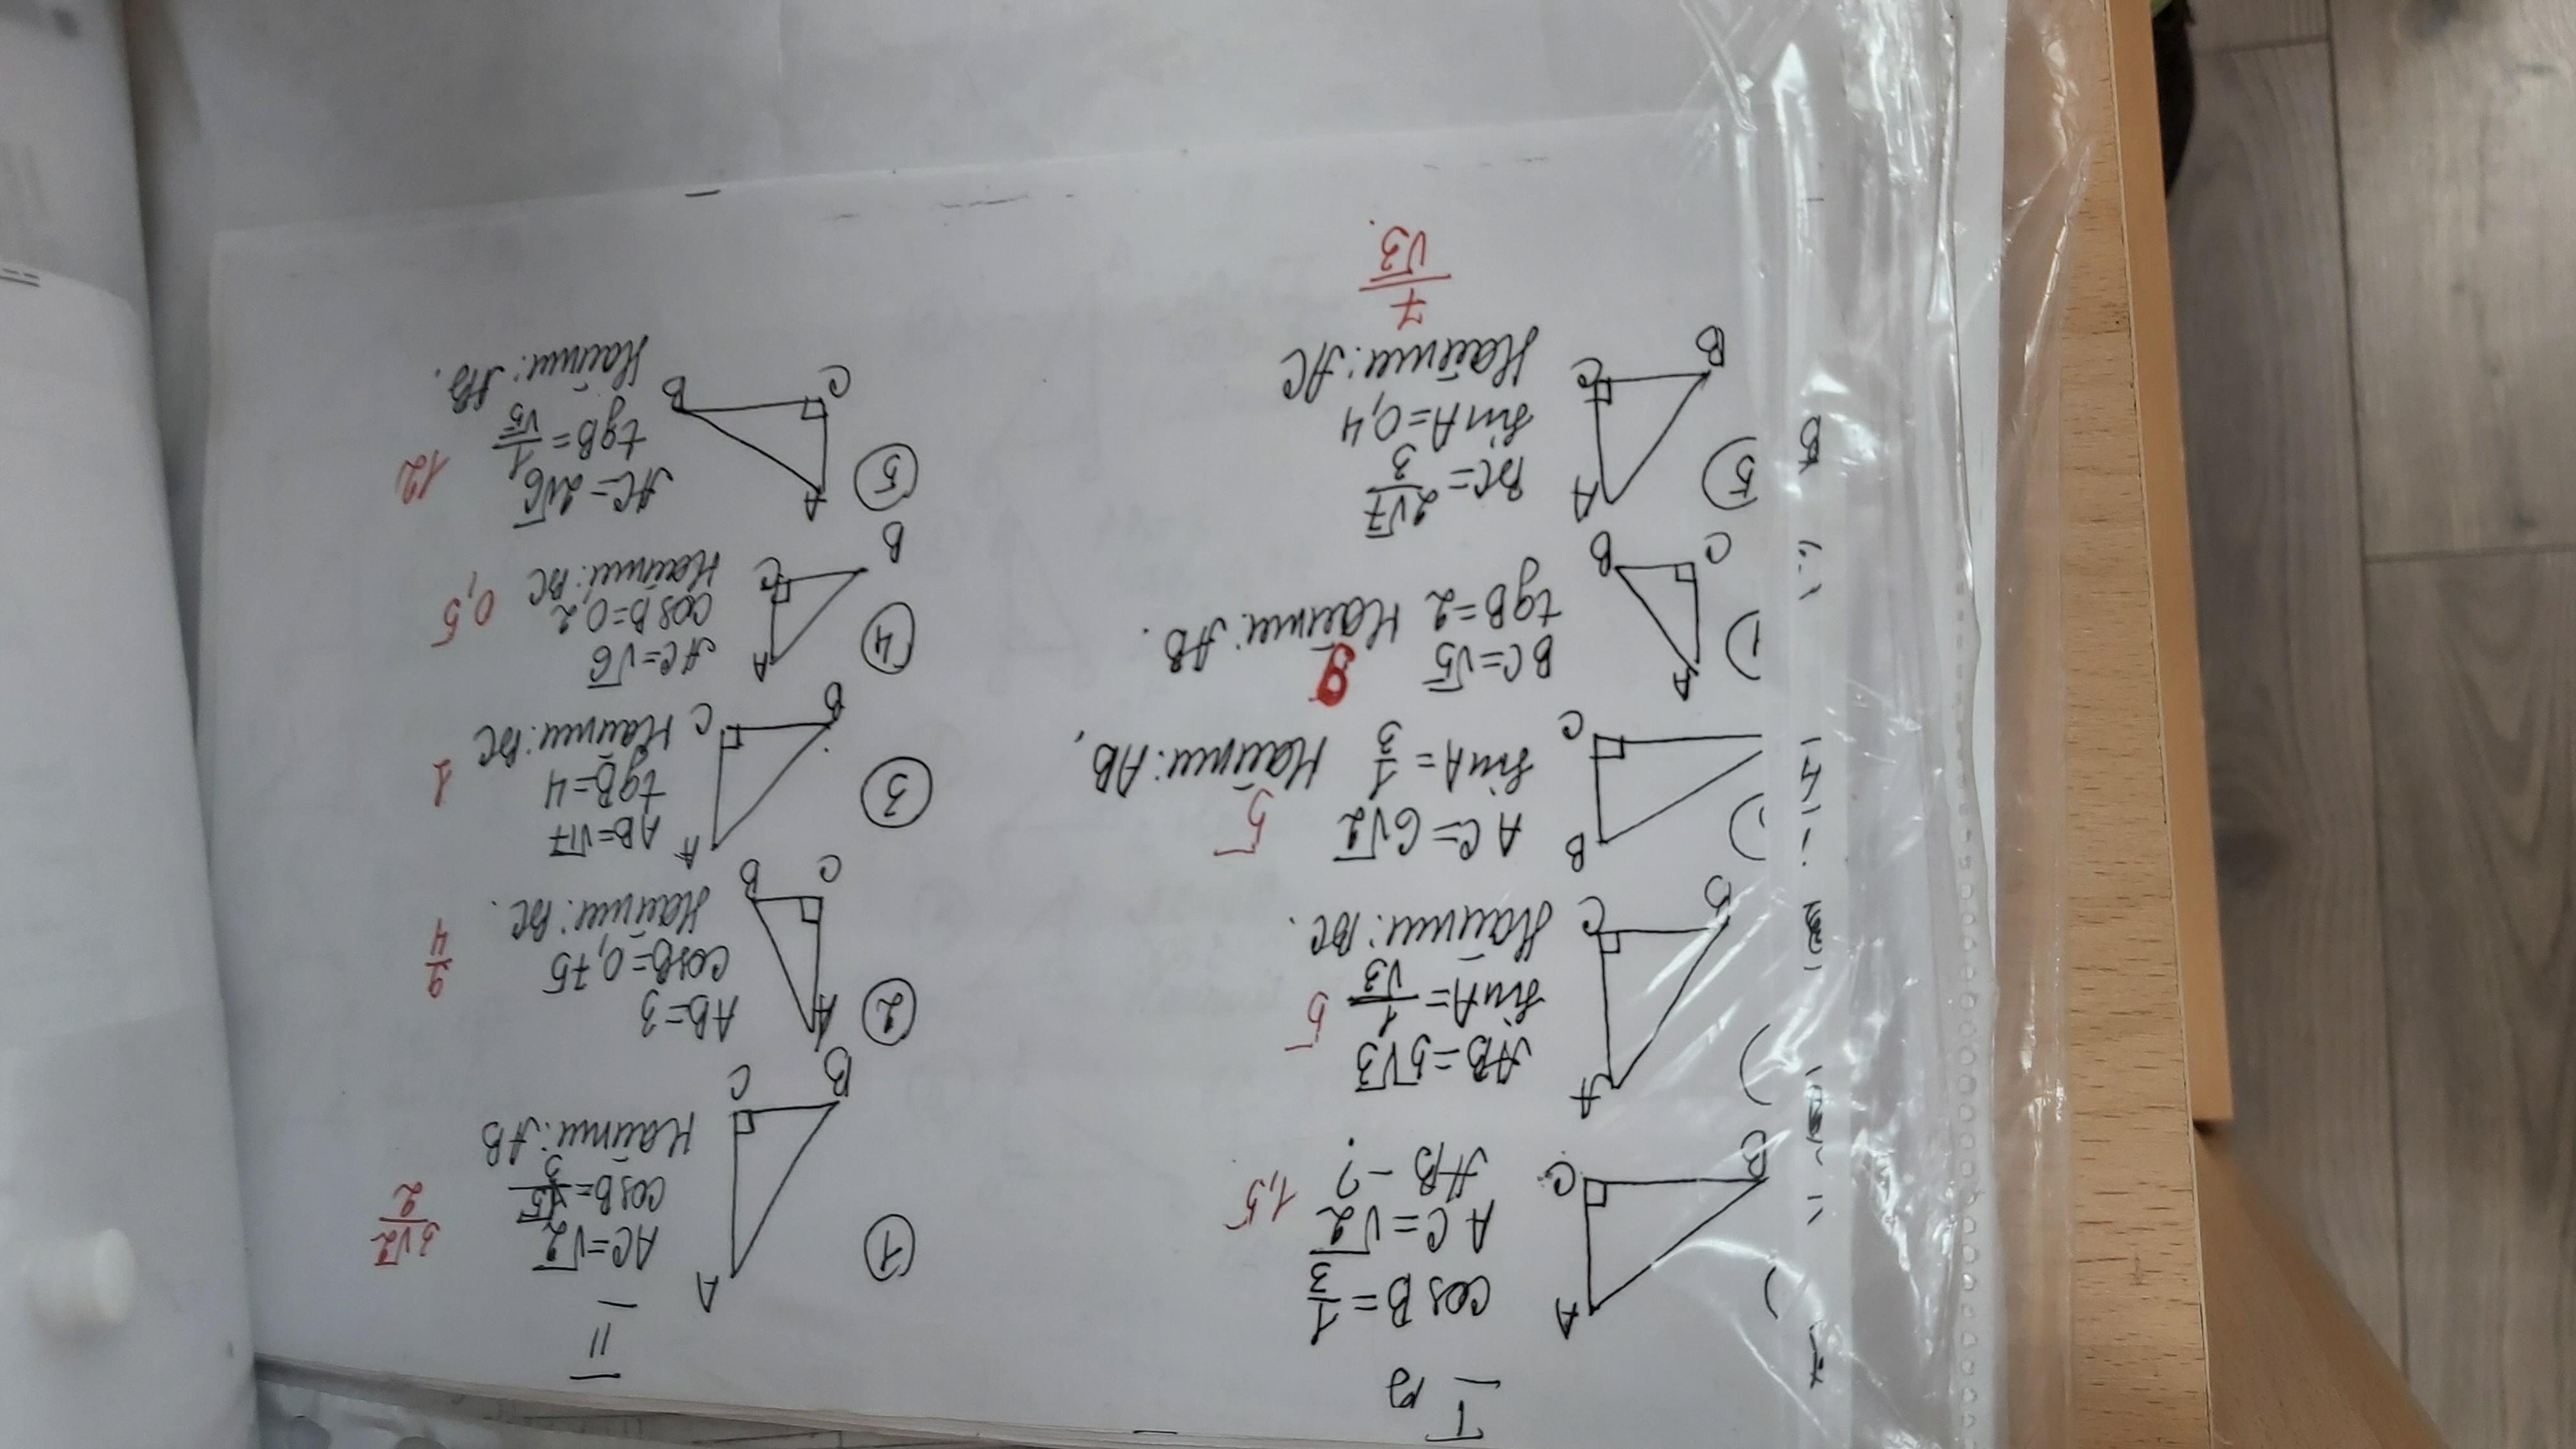 I в
A
C
B
cos B = 1/3
AC = √2
AB - ?
1,5
A
C
B
AB = 5√3
sin A = 1/√3
Найти: BC.
5
B
C
AC = 6√2
sin A = 1/3
Найти: AB.
5
9
A
C
B
BC = √5
tg B = 2 Найти: AB.
5
A
C
B
BC = 2√7/3
sin A = 0,4
Найти: AC
7/√3.
II
1
A
C
B
AC = √2
cos B = √5/3
Найти: AB
3√2/2
2
A
C
B
AB = 3
cos B = 0,75
Найти: BC.
9/4
3
A
C
B
AB = √17
tg B = 4
Найти: BC
1
4
A
C
B
AC = √6
cos B = 0,2
Найти: BC
0,5
5
A
C
B
AC = 2√6
tg B = 1/√5
Найти: AB.
12